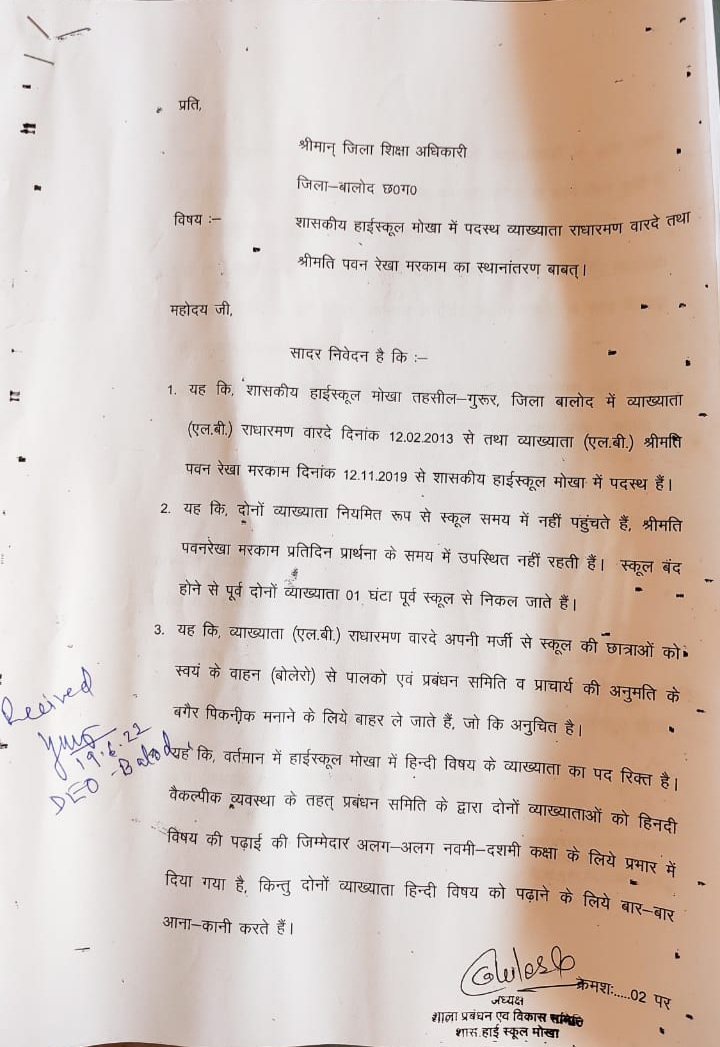 प्रति,
श्रीमान् जिला शिक्षा अधिकारी
जिला–बालोद छ0ग0
विषय :– शासकीय हाईस्कूल मोखा में पदस्थ व्याख्याता राधारमण वारदे तथा
श्रीमति पवन रेखा मरकाम का स्थानांतरण बाबत्।
महोदय जी,
सादर निवेदन है कि :–
1. यह कि, शासकीय हाईस्कूल मोखा तहसील–गुरूर, जिला बालोद में व्याख्याता
(एल.बी.) राधारमण वारदे दिनांक 12.02.2013 से तथा व्याख्याता (एल.बी.) श्रीमति
पवन रेखा मरकाम दिनांक 12.11.2019 से शासकीय हाईस्कूल मोखा में पदस्थ हैं।
2. यह कि, दोनों व्याख्याता नियमित रूप से स्कूल समय में नहीं पहुंचते हैं, श्रीमति
पवनरेखा मरकाम प्रतिदिन प्रार्थना के समय में उपस्थित नहीं रहती हैं। स्कूल बंद
होने से पूर्व दोनों व्याख्याता 01 घंटा पूर्व स्कूल से निकल जाते हैं।
3. यह कि, व्याख्याता (एल.बी.) राधारमण वारदे अपनी मर्जी से स्कूल की छात्राओं को
स्वयं के वाहन (बोलेरो) से पालको एवं प्रबंधन समिति व प्राचार्य की अनुमति के
बगैर पिकनीक मनाने के लिये बाहर ले जाते हैं, जो कि अनुचित है।
यह कि, वर्तमान में हाईस्कूल मोखा में हिन्दी विषय के व्याख्याता का पद रिक्त है।
वैकल्पीक व्यवस्था के तहत् प्रबंधन समिति के द्वारा दोनों व्याख्याताओं को हिनदी
विषय की पढ़ाई की जिम्मेदार अलग–अलग नवमी–दशमी कक्षा के लिये प्रभार में
दिया गया है, किन्तु दोनों व्याख्याता हिन्दी विषय को पढ़ाने के लिये बार–बार
आना–कानी करते हैं।
Received
19.6.22
DEO-Balod
क्रमशः.....02 पर
अध्यक्ष
शाला प्रबंधन एव विकास समिति
शास.हाई स्कूल मोखा